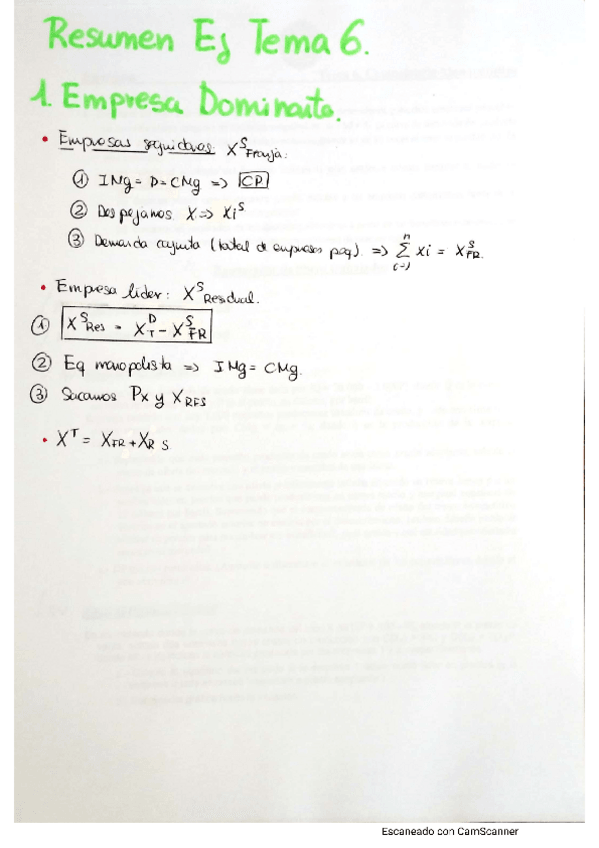 Resumen Ej Tema 6.
1. Empresa Dominante.
• Empresas seguidoras: X^S_Franja:
① IMg = P = CMg => CP
② Despejamos X => Xi^S
③ Demanda conjunta (total de empresas peq) => Σ^n_{i=1} xi = X^S_FR.
• Empresa líder: X^S_Residual.
① X^S_Res = X^D_T - X^S_FR
② Eq monopolista => IMg = CMg.
③ Sacamos Px y X_RES
• X^T = X_FR + X_R S
Escaneado con CamScanner